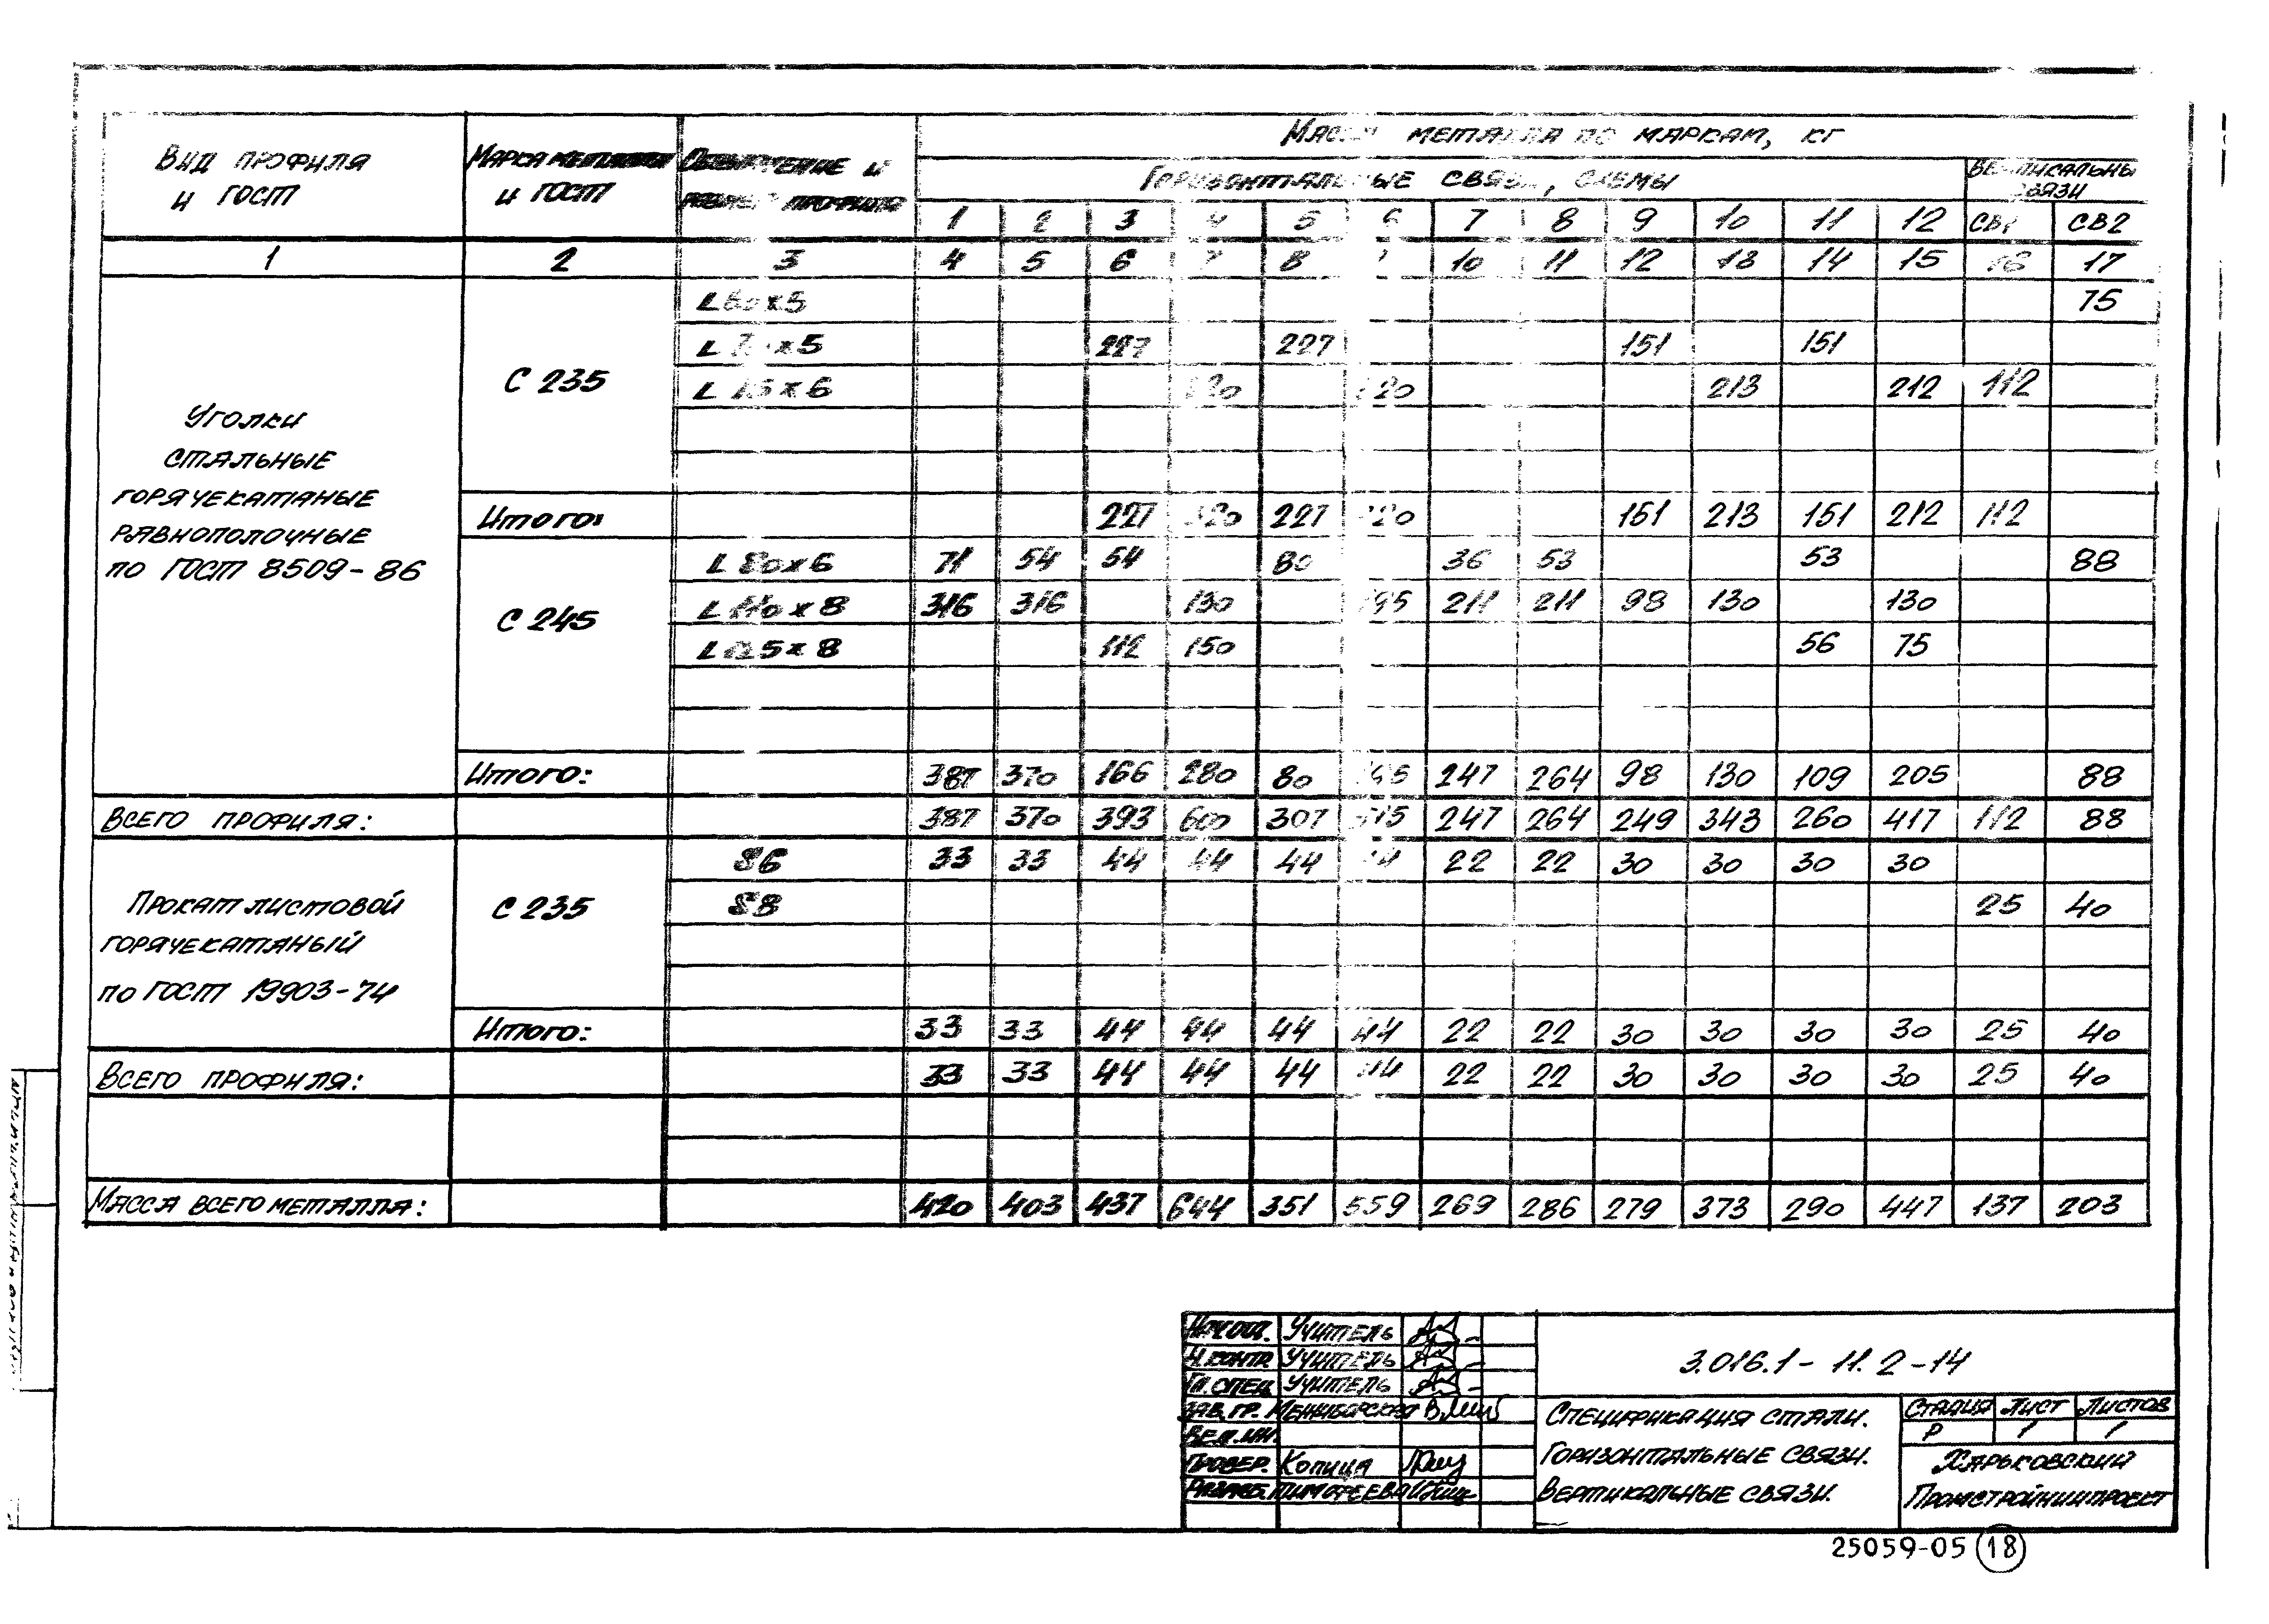 Вид профиля и ГОСТ | Марка металла и ГОСТ | Обозначение и размер профиля | Масса металла по маркам, кг
Горизонтальные связи, схемы | Вертикальные связи
1 2 3 4 5 6 7 8 9 10 11 12 СВ1 СВ2
1 2 3 4 5 6 7 8 10 11 12 13 14 15 16 17
Уголки
стальные
горячекатаные
равнополочные
по ГОСТ 8509-86
С 235
L x5 75
L x5 227 227 151 151
L x6 213 212 112
Итого: 227 320 227 151 213 151 212 112
С 245
L 80x6 71 54 54 80 36 53 53 88
L 110x8 316 316 130 195 211 211 98 130 130
L 125x8 112 150 56 75
Итого: 387 370 166 280 80 195 247 264 98 130 109 205 88
Всего профиля: 387 370 393 600 307 515 247 264 249 343 260 417 112 88
Прокат листовой
горячекатаный
по ГОСТ 19903-74
С 235
δ6 33 33 44 44 44 44 22 22 30 30 30 30
δ8 25 40
Итого: 33 33 44 44 44 44 22 22 30 30 30 30 25 40
Всего профиля: 33 33 44 44 44 44 22 22 30 30 30 30 25 40
Масса всего металла: 420 403 437 644 351 559 269 286 279 373 290 447 137 203
Нач.отд. Учитель
Н.контр. Учитель
Гл.спец. Учитель
Зав.гр.
Вед.ин.
Провер. Копица
Разраб. Тимофеева
3.016.1-11.2-14
Спецификация стали.
Горизонтальные связи.
Вертикальные связи.
Стадия Лист Листов
Р 1 1
Харьковский
Промстройниипроект
25059-05 18